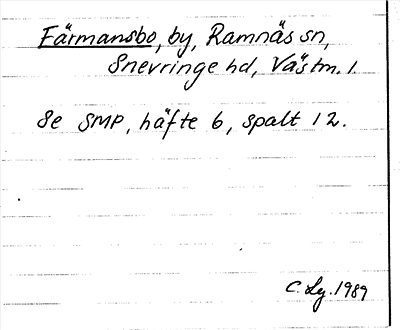 Färmansbo, by, Ramnäs sn,
Snevringe hd, Västm. l.
Se SMP, häfte 6, spalt 12.
C. Lg. 1989